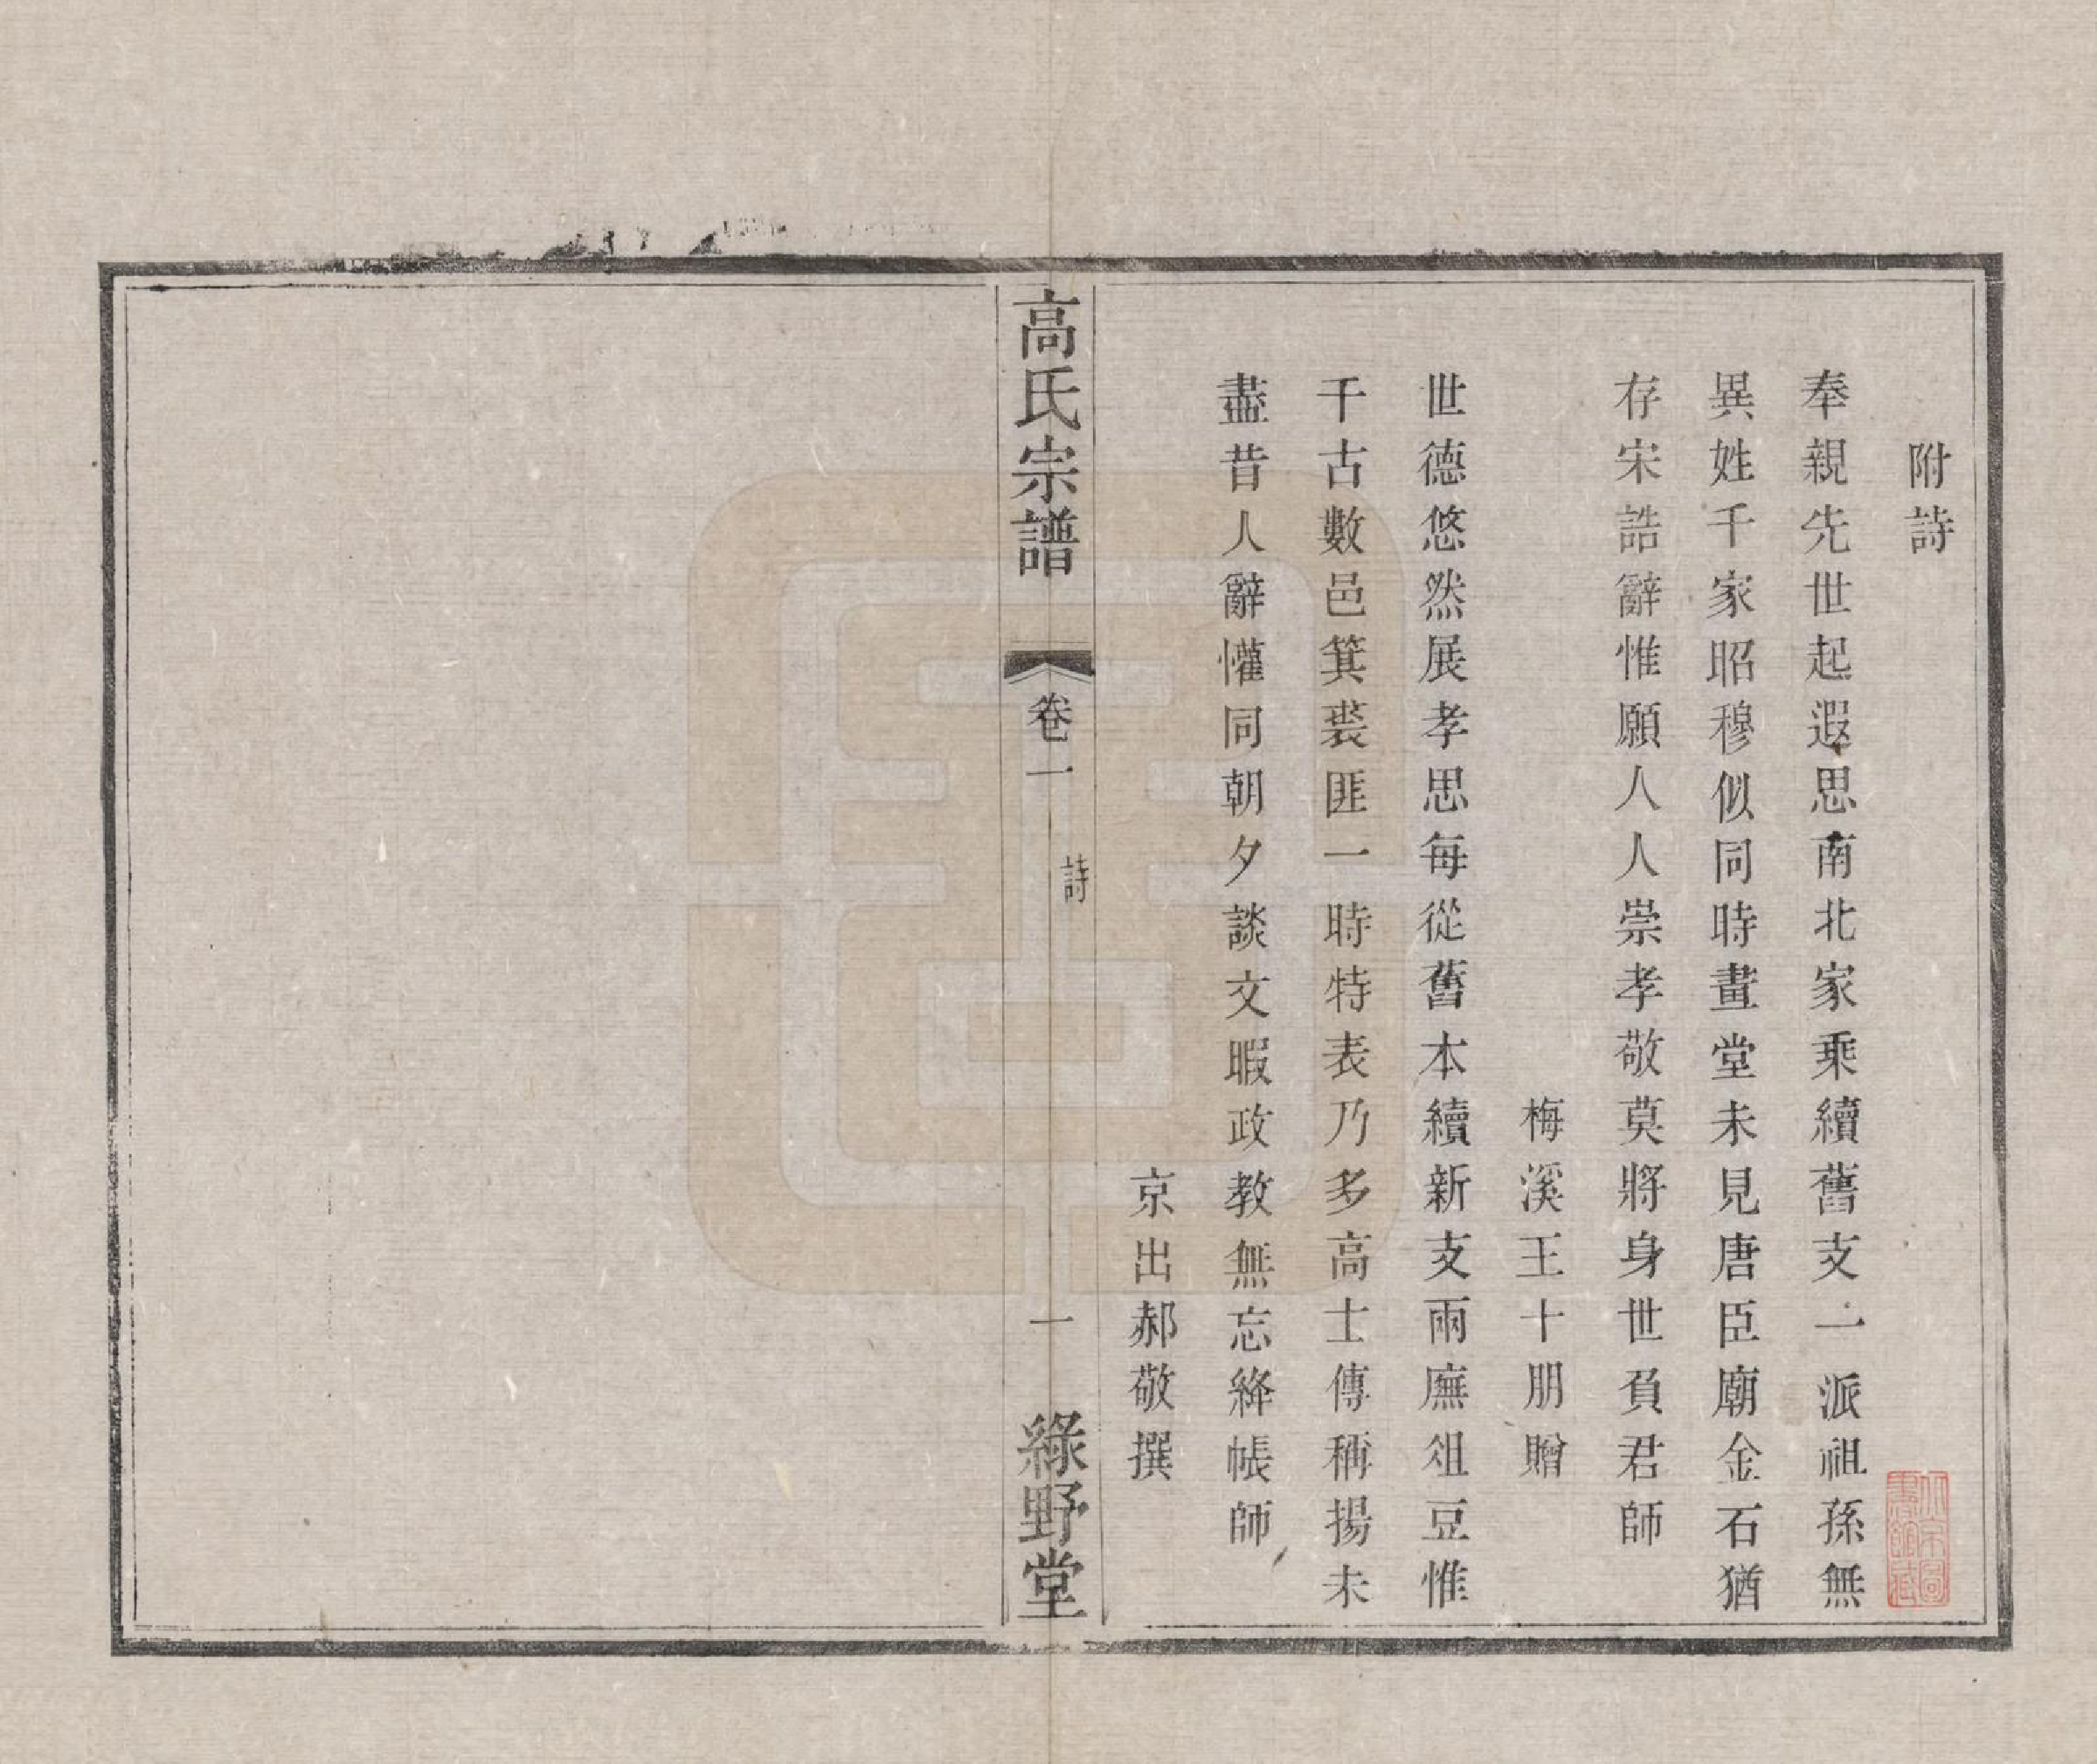 附詩
奉親先世起遐思南北家乘續舊支一派祖孫無
異姓千家昭穆似同時畫堂未見唐臣廟金石猶
存宋誥辭惟願人人崇孝敬莫將身世負君師
梅溪王十朋贈
世德悠然展孝思每從舊本續新支兩廡俎豆惟
千古數邑箕裘匪一時特表乃多高士傳稱揚未
盡昔人辭懽同朝夕談文暇政教無忘絳帳師
京出郝敬撰
高氏宗譜
卷一
詩
一
綠野堂